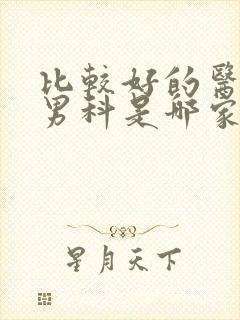 比較好的醫
男科是哪家
星月天下